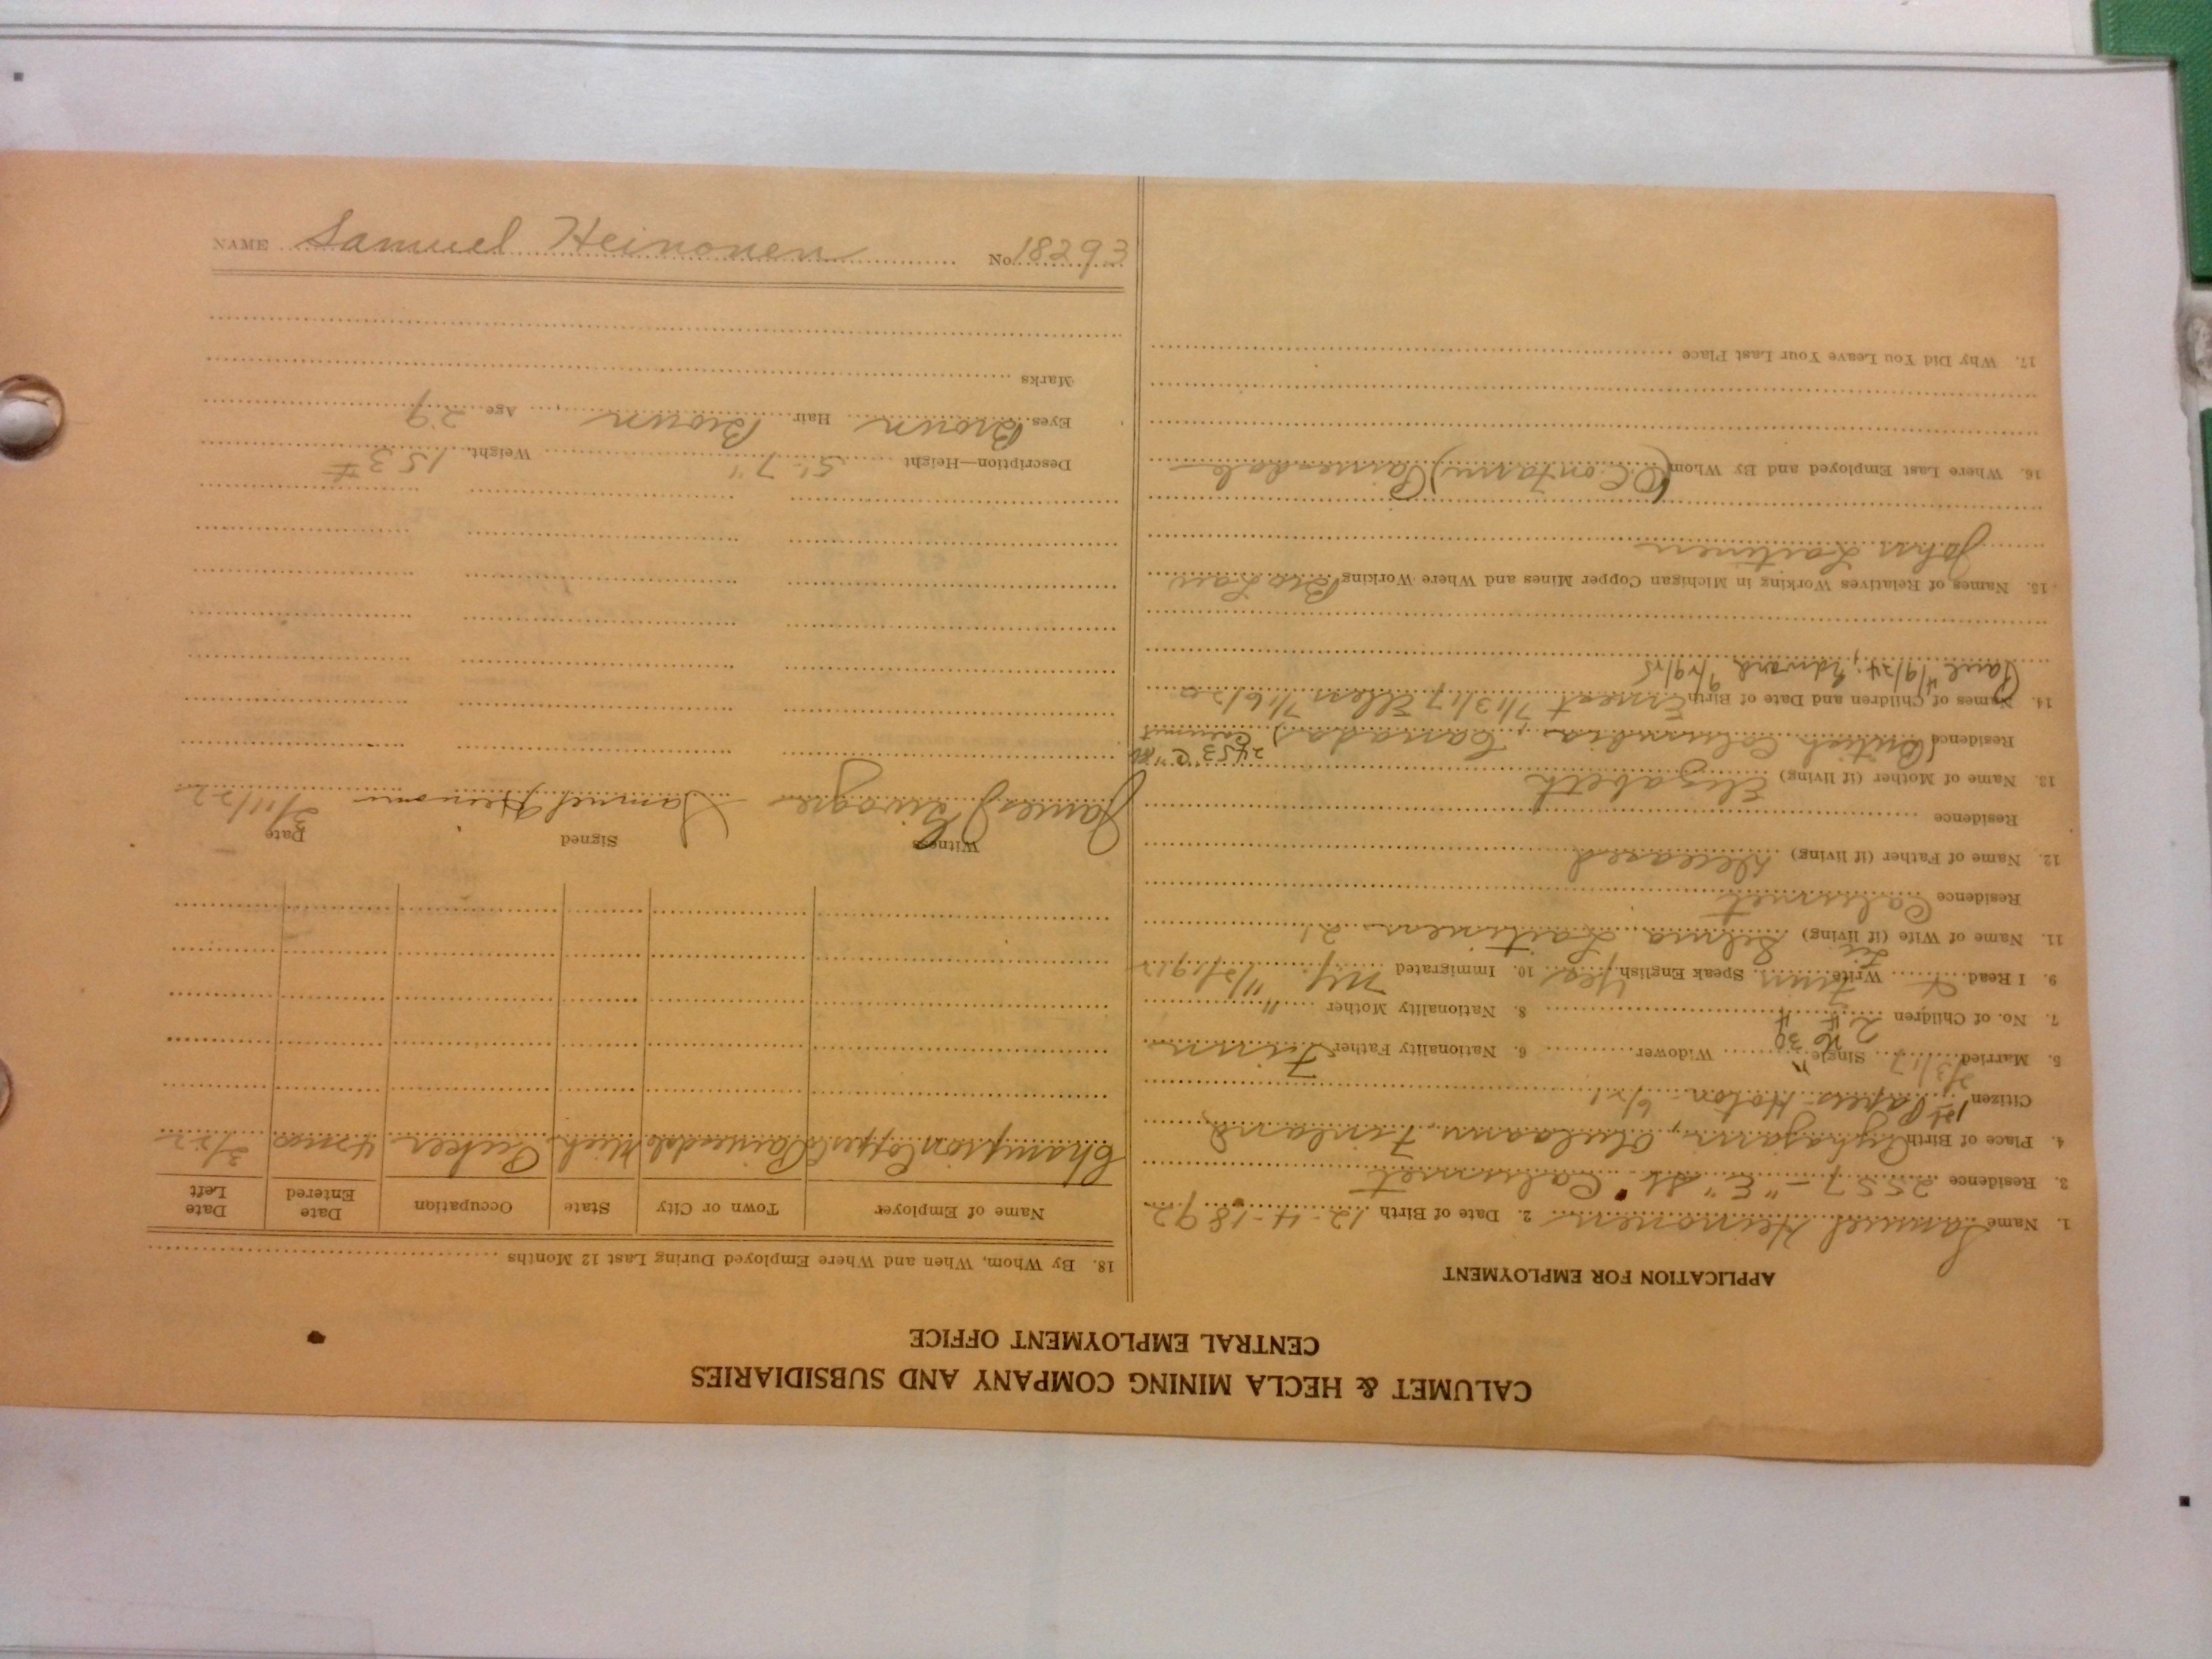 CALUMET & HECLA MINING COMPANY AND SUBSIDIARIES
CENTRAL EMPLOYMENT OFFICE
APPLICATION FOR EMPLOYMENT
1. Name Samuel Heinonen 2. Date of Birth 12-4-1892
3. Residence 2557 - "E" St. Calumet
4. Place of Birth Pyhajarvi, Oulu, Finland
Citizen 1st Papers - Hoton - 6/21
5. Married 2/3/17 Single Widower 6. Nationality Father Finn
7. No. of Children 2 4 8. Nationality Mother "
9. I Read Write Finn Speak English Yes 10. Immigrated N.Y.
11. Name of Wife (if living) Selma Laitinen 21
Residence Calumet
12. Name of Father (if living) deceased
Residence
13. Name of Mother (if living) Elizabeth 2453 "C" Calumet
Residence (British Columbia, Canada)
14. Names of Children and Date of Birth Ernest 7/13/17 Ellen 7/16/20
Paul 4/9/24; Edward 9/29/25
15. Names of Relatives Working in Michigan Copper Mines and Where Working Bro Law
John Laitinen
16. Where Last Employed and By Whom Painesdale
17. Why Did You Leave Your Last Place
18. By Whom, When and Where Employed During Last 12 Months
Name of Employer Town or City State Occupation Date Entered Date Left
Champion Copper Co Painesdale Mich Picker 4 mos 3/22
Witness Signed Date
James Samuel Heinonen 3/11/22
Description—Height 5'-7" Weight 153 #
Eyes Brown Hair Brown Age 29
Marks
NAME Samuel Heinonen No. 18293